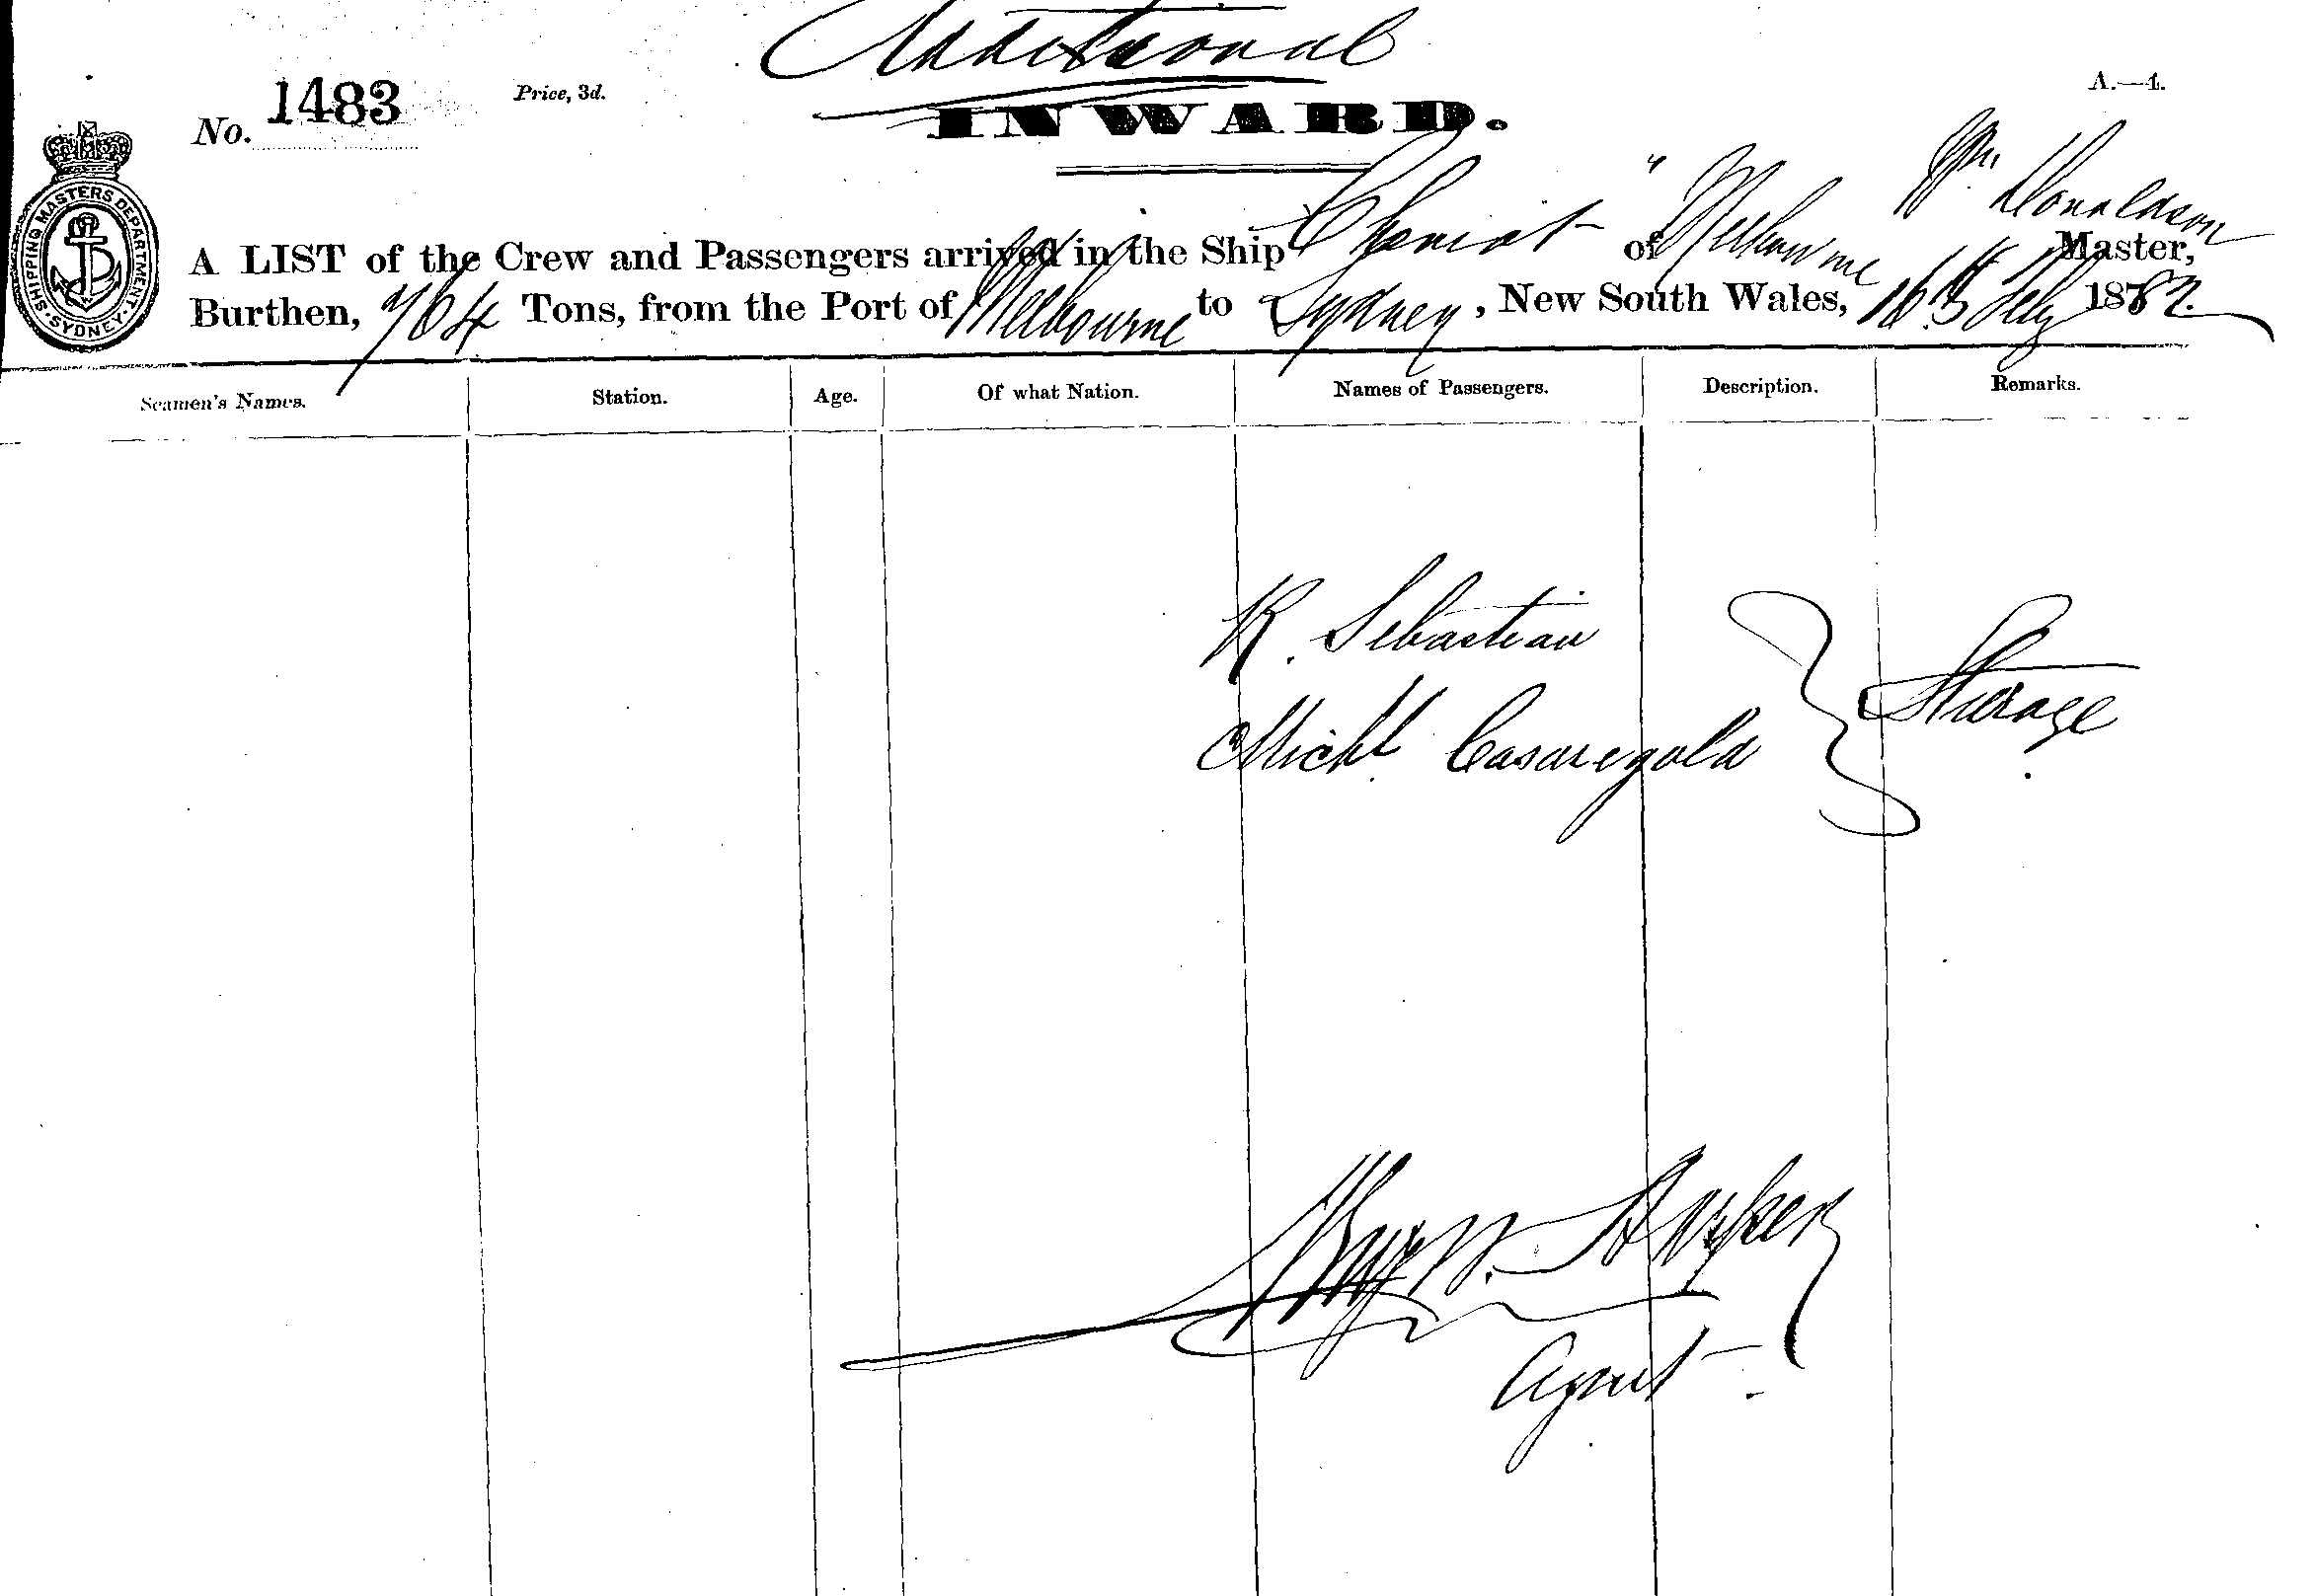 Additional
No. 1483 Price, 3d. A.—4.
INWARD.
SHIPPING MASTERS DEPARTMENT · SYDNEY ·
A LIST of the Crew and Passengers arrived in the Ship "Cheviot" of Melbourne Wm. Donaldson Master,
Burthen, 764 Tons, from the Port of Melbourne to Sydney, New South Wales, 16th July 1882.
Seamen's Names. Station. Age. Of what Nation. Names of Passengers. Description. Remarks.
R. Sebastian
Steerage
Michl. Casaregola
Agent